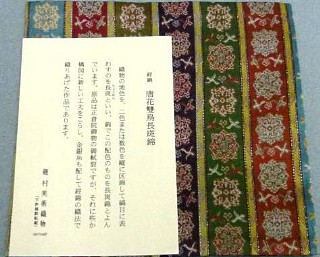 経錦　唐花雙鳥長斑錦
織物の地色を、二色または数色を縦に区画して縞目に表
わすのを長斑といい、錦でこの配色のものを長斑錦とよん
でいます。原品は正倉院御物の御軾裂ですが、それに些か
構図に新しい工夫をこらし、金銀糸も配して経錦の織法で
織りあげた作品であります。
龍村美術織物